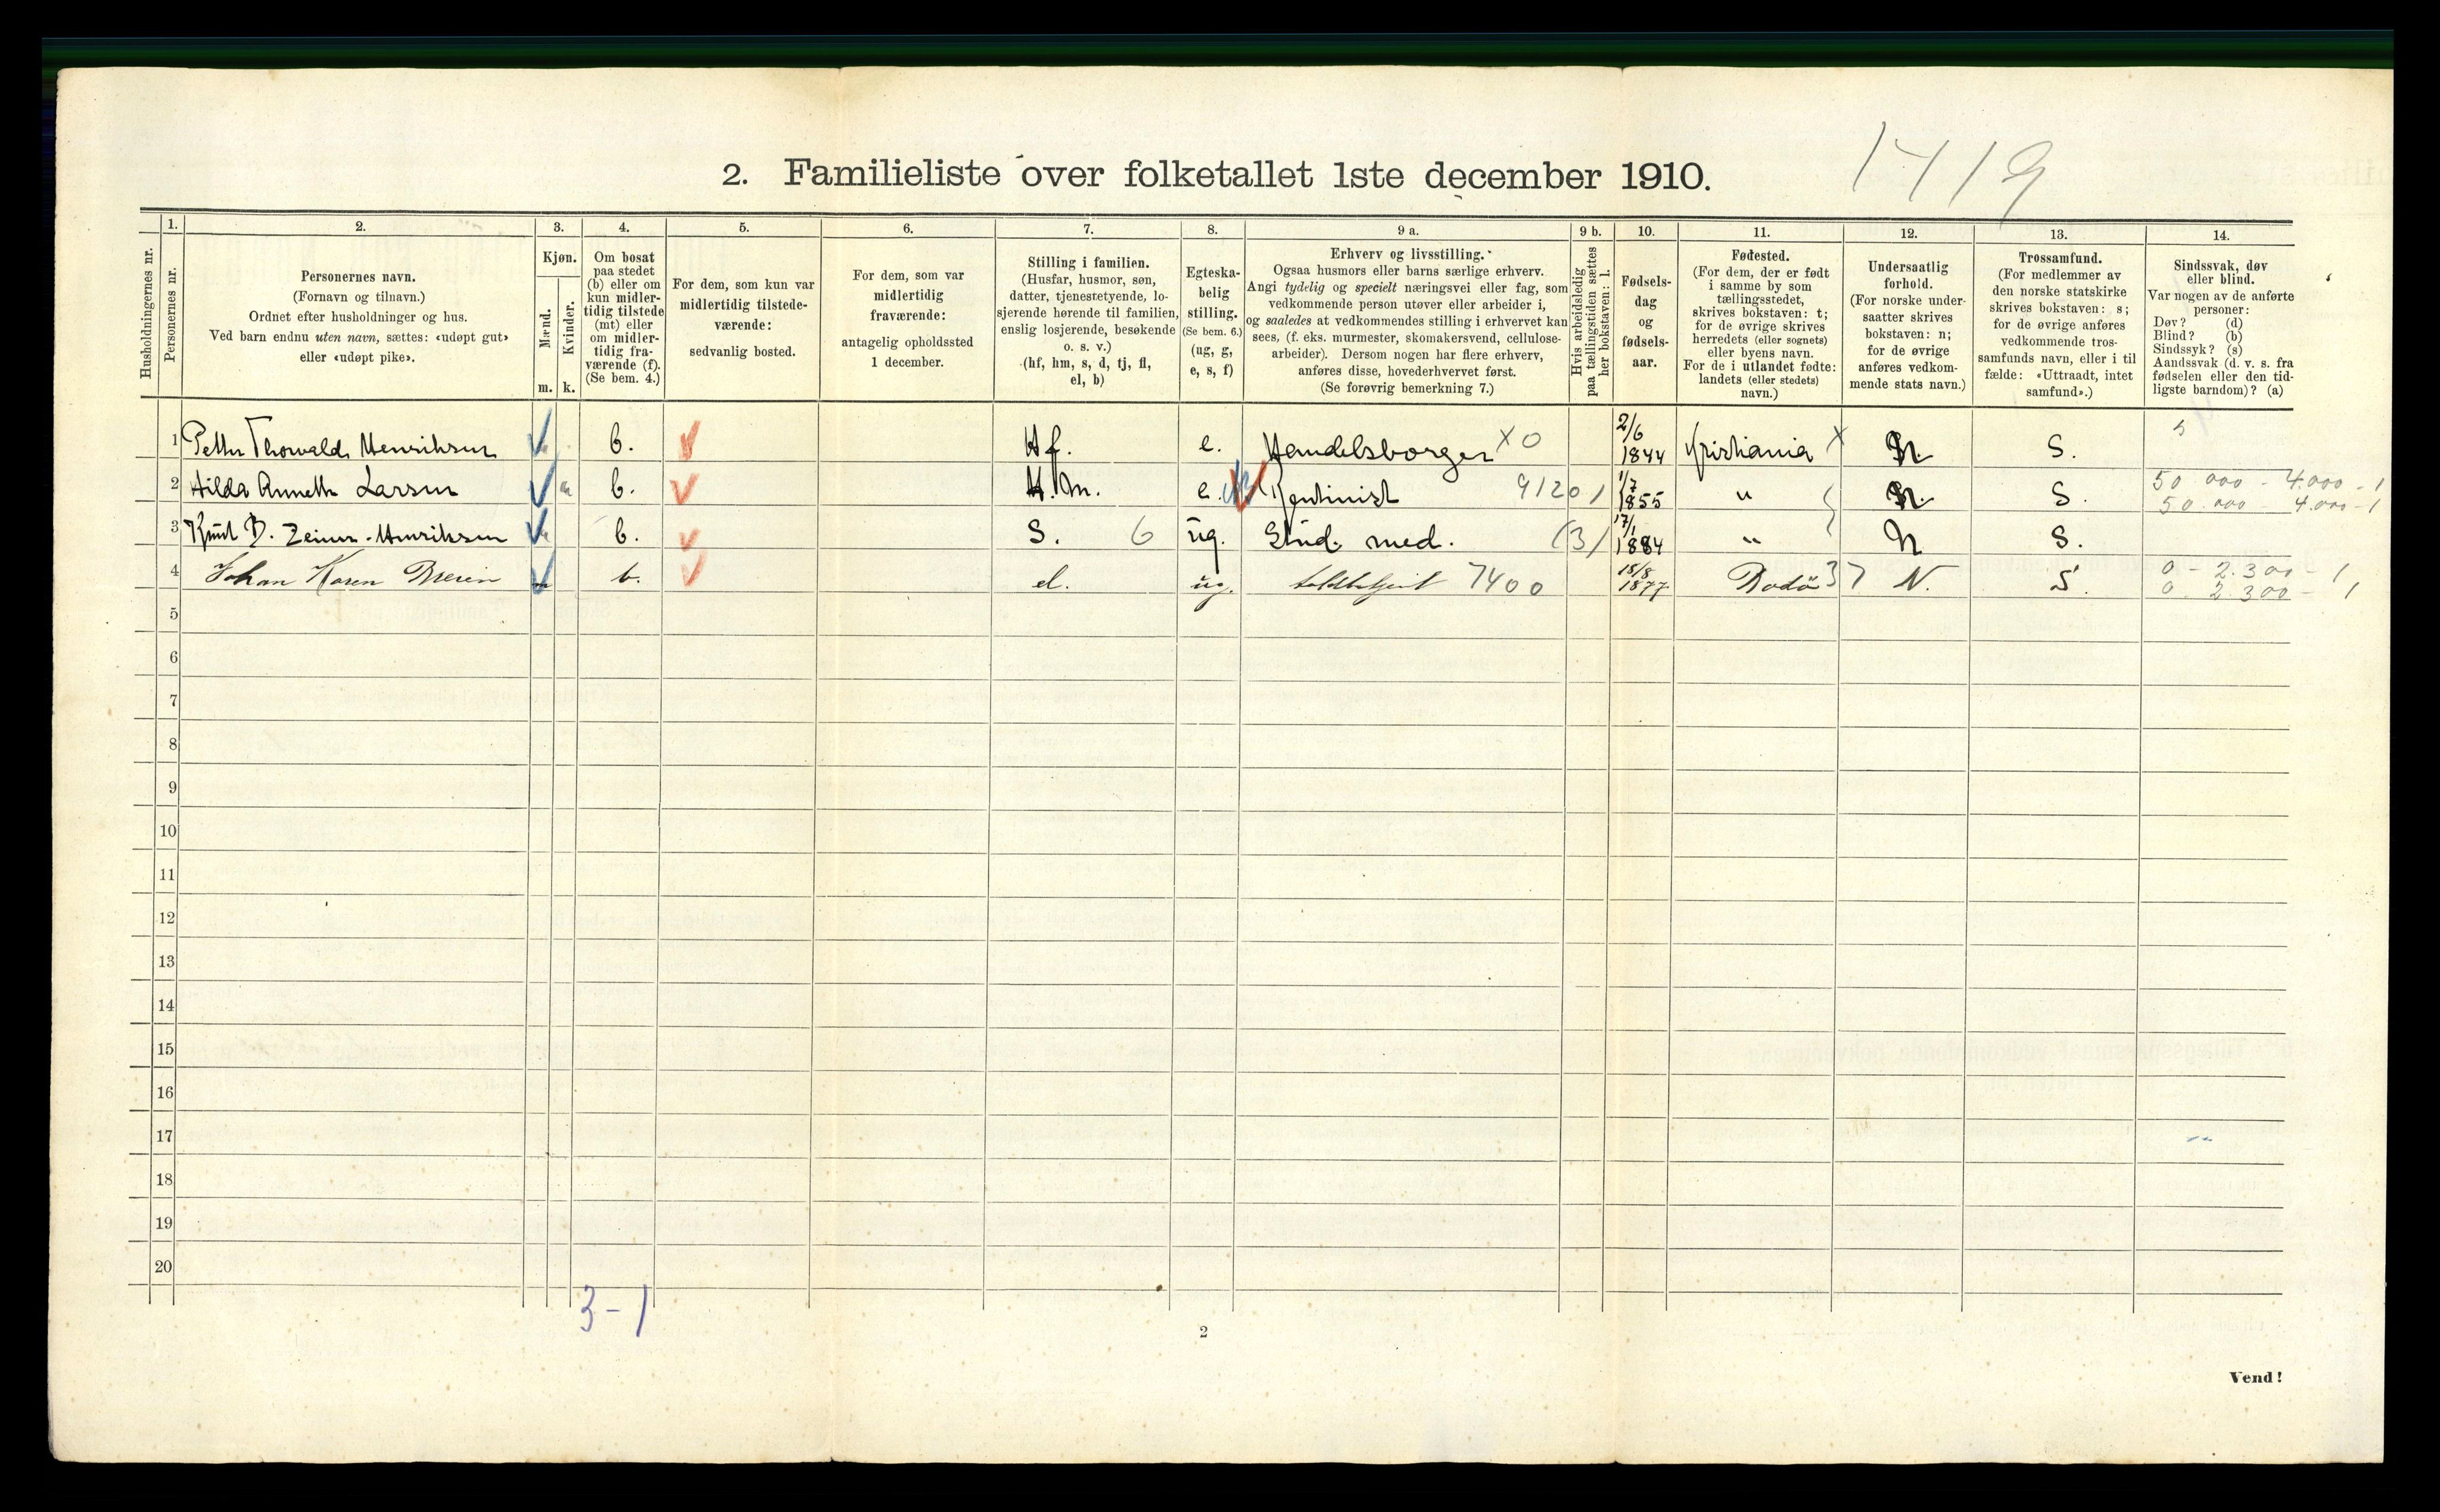 2. Familieliste over folketallet 1ste december 1910.
1419
Husholdningernes nr.
1.
Personernes nr.
2.
Personernes navn.
(Fornavn og tilnavn.)
Ordnet efter husholdninger og hus.
Ved barn endnu uten navn, sættes: «udøpt gut»
eller «udøpt pike».
3.
Kjøn.
Mænd.
Kvinder.
m. k.
4.
Om bosat
paa stedet
(b) eller om
kun midler-
tidig tilstede
(mt) eller
om midler-
tidig fra-
værende (f).
(Se bem. 4.)
5.
For dem, som kun var
midlertidig tilstede-
værende:
sedvanlig bosted.
6.
For dem, som var
midlertidig
fraværende:
antagelig opholdssted
1 december.
7.
Stilling i familien.
(Husfar, husmor, søn,
datter, tjenestetyende, lo-
sjerende hørende til familien,
enslig losjerende, besøkende
o. s. v.)
(hf, hm, s, d, tj, fl,
el, b)
8.
Egteska-
belig
stilling.
(Se bem. 6.)
(ug, g,
e, s, f)
9 a.
Erhverv og livsstilling.
Ogsaa husmors eller barns særlige erhverv.
Angi tydelig og specielt næringsvei eller fag, som
vedkommende person utøver eller arbeider i,
og saaledes at vedkommendes stilling i erhvervet kan
sees, (f. eks. murmester, skomakersvend, cellulose-
arbeider). Dersom nogen har flere erhverv,
anføres disse, hovederhvervet først.
(Se forøvrig bemerkning 7.)
9 b.
Hvis arbeidsledig
paa tællingstiden sættes
her bokstaven: l.
10.
Fødsels-
dag
og
fødsels-
aar.
11.
Fødested.
(For dem, der er født
i samme by som
tællingsstedet,
skrives bokstaven: t;
for de øvrige skrives
herredets (eller sognets)
eller byens navn.
For de i utlandet fødte:
landets (eller stedets)
navn.)
12.
Undersaatlig
forhold.
(For norske under-
saatter skrives
bokstaven: n;
for de øvrige
anføres vedkom-
mende stats navn.)
13.
Trossamfund.
(For medlemmer av
den norske statskirke
skrives bokstaven: s;
for de øvrige anføres
vedkommende tros-
samfunds navn, eller i til
fælde: «Uttraadt, intet
samfund».)
14.
Sindssvak, døv
eller blind.
Var nogen av de anførte
personer:
Døv? (d)
Blind? (b)
Sindssyk? (s)
Aandssvak (d. v. s. fra
fødselen eller den tid-
ligste barndom)? (a)
1 Petter Thorvald Henriksen b. Hf. e. Handelsborger X0 2/6 1844 Kristiania X N. S. 5
2 Hilda Annette Larsen k b. H.m. e. Rentinist 9120 1/7 1855 " N. S. 50 000 - 4.000 - 1
50.000 - 4.000 - 1
3 Knut B. Zeiner-Henriksen b. S. 6 ug. Stud. med. (3) 17/1 1884 " N S.
4 Johan Koren b. el. ug. 7400 15/8 1877 Bodö 37 N. S. 0 - 2.300 - 1
0 2.300 - 1
5
6
7
8
9
10
11
12
13
14
15
16
17
18
19
20
3-1
2
Vend!